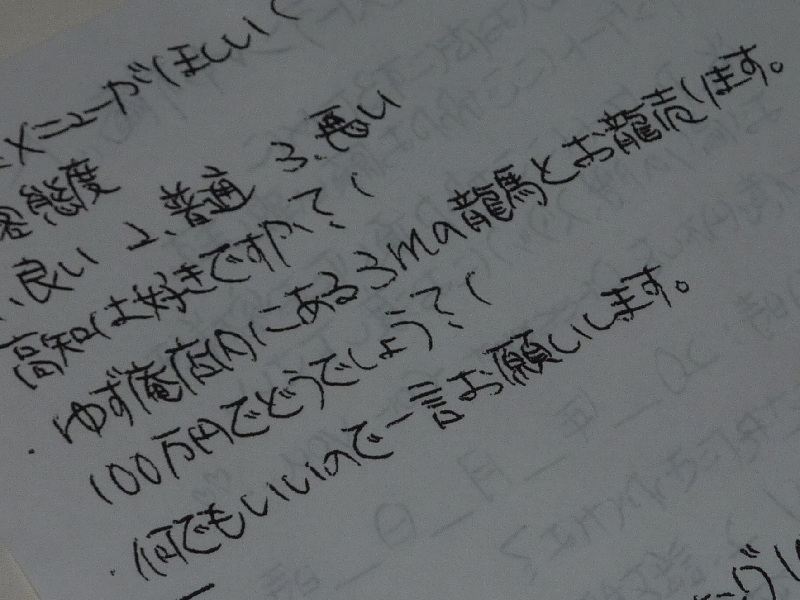 メニューがほしい(
態度
良い 2.普通 3.悪い
高知は好きですか?(
・ゆず庵店内にある3ma龍馬とお龍売ります。
100万円でどうでしょう?(
・何でもいいので一言お願いします。